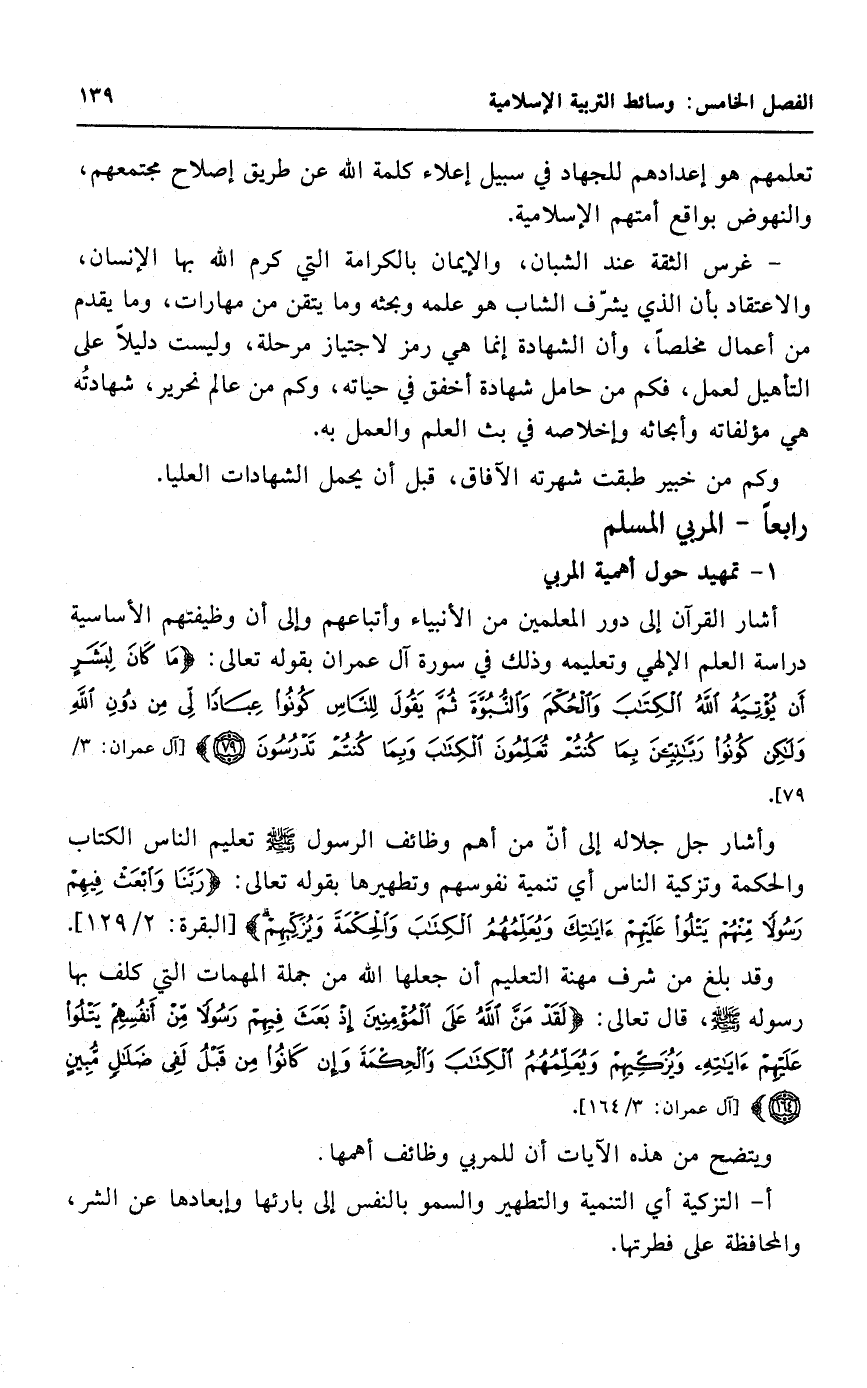 الفصل الخامس: وسائط التربية الإسلامية ١٣٩
تعلمهم هو إعدادهم للجهاد في سبيل إعلاء كلمة الله عن طريق إصلاح مجتمعهم،
والنهوض بواقع أمتهم الإسلامية.
- غرس الثقة عند الشبان، والإيمان بالكرامة التي كرم الله بها الإنسان،
والاعتقاد بأن الذي يشرّف الشاب هو علمه وبحثه وما يتقن من مهارات، وما يقدم
من أعمال مخلصاً، وأن الشهادة إنما هي رمز لاجتياز مرحلة، وليست دليلاً على
التأهيل لعمل، فكم من حامل شهادة أخفق في حياته، وكم من عالم نحرير، شهادتُه
هي مؤلفاته وأبحاثه وإخلاصه في بث العلم والعمل به.
وكم من خبير طبقت شهرته الآفاق، قبل أن يحمل الشهادات العليا.
رابعاً - المربي المسلم
١- تمهيد حول أهمية المربي
أشار القرآن إلى دور المعلمين من الأنبياء وأتباعهم وإلى أن وظيفتهم الأساسية
دراسة العلم الإلهي وتعليمه وذلك في سورة آل عمران بقوله تعالى: ﴿مَا كَانَ لِبَشَرٍ
أَن يُؤْتِيَهُ ٱللَّهُ ٱلْكِتَٰبَ وَٱلْحُكْمَ وَٱلنُّبُوَّةَ ثُمَّ يَقُولَ لِلنَّاسِ كُونُوا۟ عِبَادًا لِّى مِن دُونِ ٱللَّهِ
وَلَٰكِن كُونُوا۟ رَبَّٰنِيِّۦنَ بِمَا كُنتُمْ تُعَلِّمُونَ ٱلْكِتَٰبَ وَبِمَا كُنتُمْ تَدْرُسُونَ ۝٧٩﴾ [آل عمران: ٣/
٧٩].
وأشار جل جلاله إلى أنّ من أهم وظائف الرسول ﷺ تعليم الناس الكتاب
والحكمة وتزكية الناس أي تنمية نفوسهم وتطهيرها بقوله تعالى: ﴿رَبَّنَا وَٱبْعَثْ فِيهِمْ
رَسُولًا مِّنْهُمْ يَتْلُوا۟ عَلَيْهِمْ ءَايَٰتِكَ وَيُعَلِّمُهُمُ ٱلْكِتَٰبَ وَٱلْحِكْمَةَ وَيُزَكِّيهِمْ﴾ [البقرة: ٢/ ١٢٩].
وقد بلغ من شرف مهنة التعليم أن جعلها الله من جملة المهمات التي كلف بها
رسوله ﷺ، قال تعالى: ﴿لَقَدْ مَنَّ ٱللَّهُ عَلَى ٱلْمُؤْمِنِينَ إِذْ بَعَثَ فِيهِمْ رَسُولًا مِّنْ أَنفُسِهِمْ يَتْلُوا۟
عَلَيْهِمْ ءَايَٰتِهِۦ وَيُزَكِّيهِمْ وَيُعَلِّمُهُمُ ٱلْكِتَٰبَ وَٱلْحِكْمَةَ وَإِن كَانُوا۟ مِن قَبْلُ لَفِى ضَلَٰلٍ مُّبِينٍ
۝١٦٤﴾ [آل عمران: ٣/ ١٦٤].
ويتضح من هذه الآيات أن للمربي وظائف أهمها.
أ- التزكية أي التنمية والتطهير والسمو بالنفس إلى بارئها وإبعادها عن الشر،
والمحافظة على فطرتها.